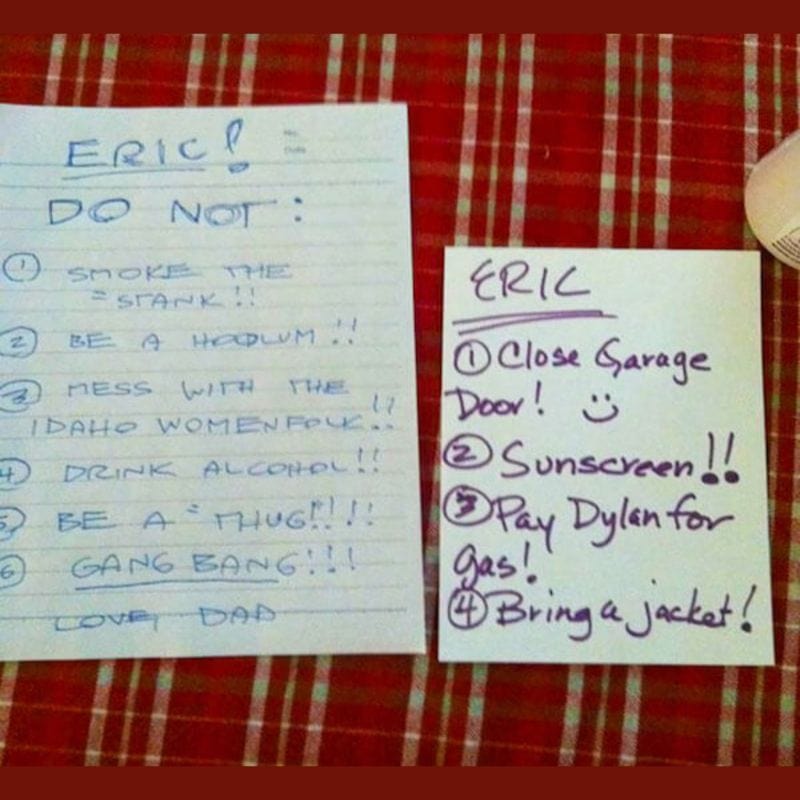 ERIC!
DO NOT:
① SMOKE THE
"STANK!!
② BE A HOODLUM!!
③ MESS WITH THE
IDAHO WOMENFOLK!!
④ DRINK ALCOHOL!!
⑤ BE A "THUG!!!!
⑥ GANG BANG!!!
LOVE, DAD
ERIC
① Close Garage
Door! :)
② Sunscreen!!
③ Pay Dylan for
gas!
④ Bring a jacket!